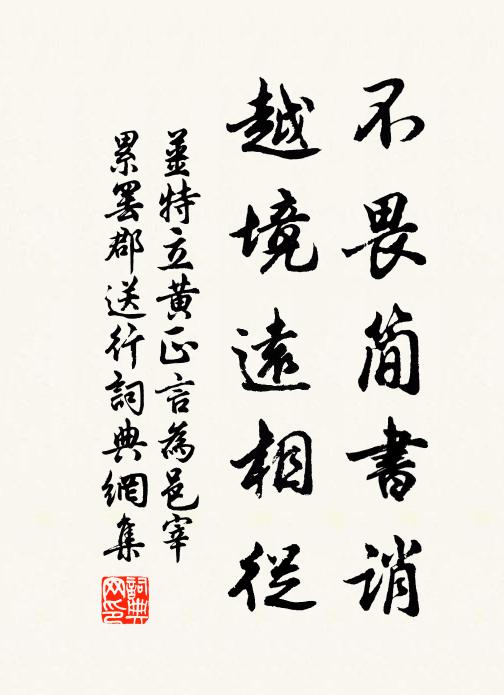 不畏簡書誚
越境遠相從
姜特立黃正言為邑宰
累罷郡送行詞典網集
詞典網印